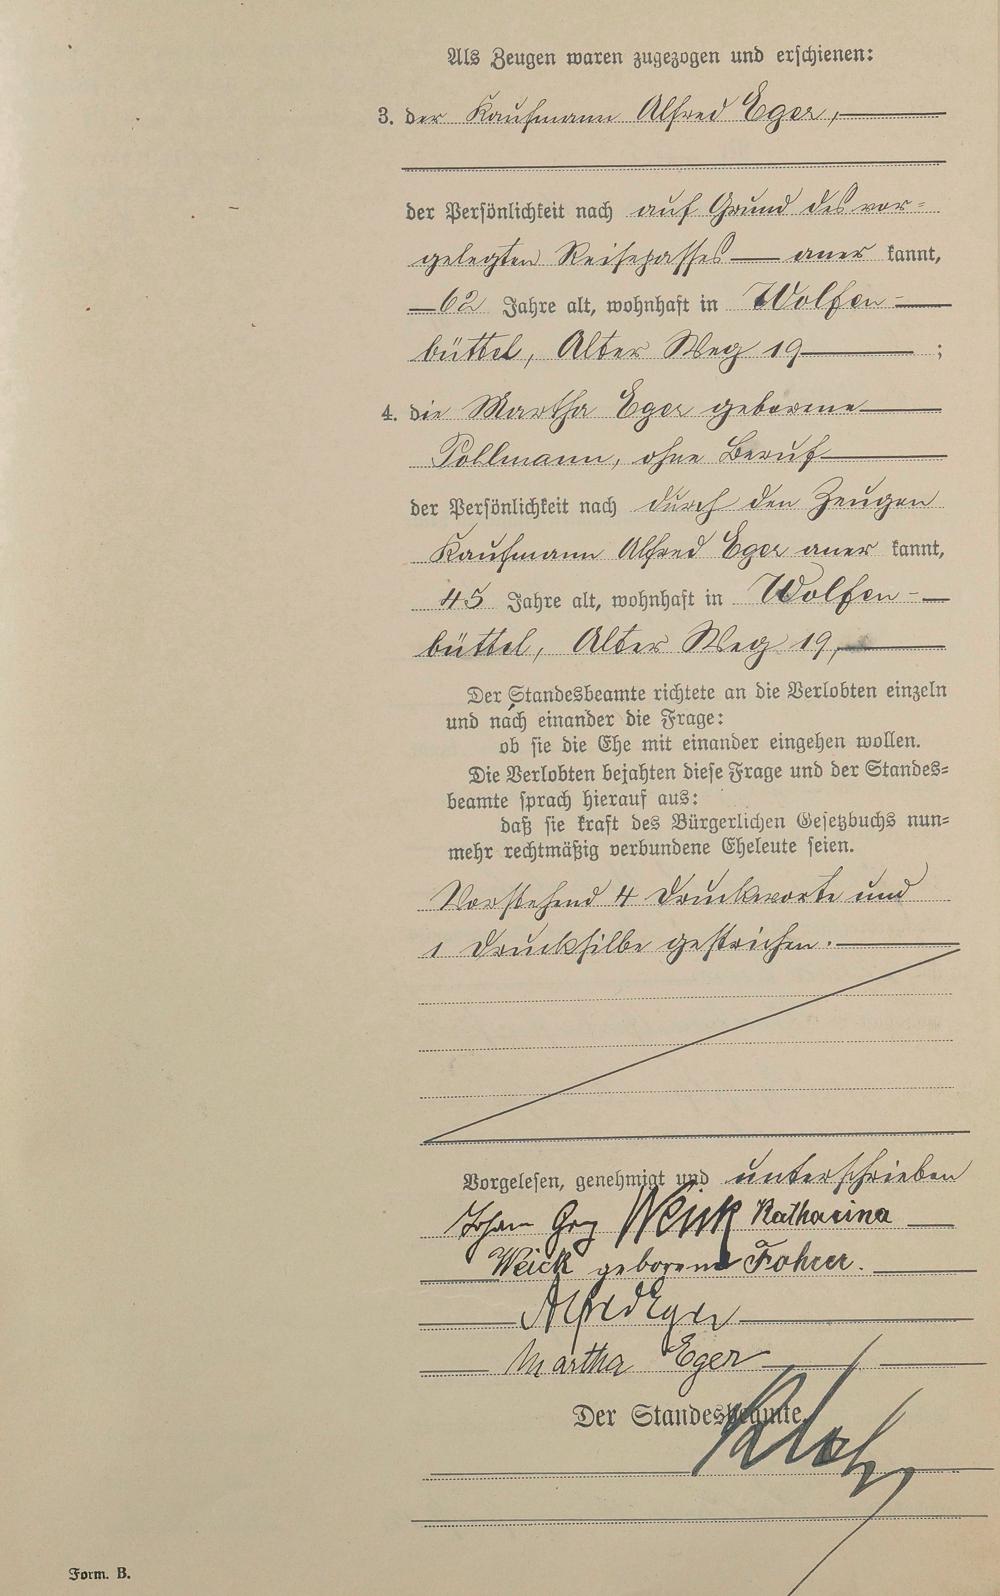 Als Zeugen waren zugezogen und erschienen:
3. der Kaufmann Alfred Eger,
der Persönlichkeit nach auf Grund des vor-
gelegten Reisepasses — aner kannt,
62 Jahre alt, wohnhaft in Wolfen-
büttel, Alter Weg 19 ;
4. die Martha Eger geborene
Pollmann, ohne Beruf
der Persönlichkeit nach durch den Zeugen
Kaufmann Alfred Eger aner kannt,
45 Jahre alt, wohnhaft in Wolfen-
büttel, Alter Weg 19,
Der Standesbeamte richtete an die Verlobten einzeln
und nach einander die Frage:
ob sie die Ehe mit einander eingehen wollen.
Die Verlobten bejahten diese Frage und der Standes-
beamte sprach hierauf aus:
daß sie kraft des Bürgerlichen Gesetzbuchs nun-
mehr rechtmäßig verbundene Eheleute seien.
Vorstehend 4 Druckworte und
1 Drucksilbe gestrichen.
Vorgelesen, genehmigt und unterschrieben
Johann Georg Weick Katharina
Weick geborene Fohrer.
Alfred Eger
Martha Eger
Der Standesbeamte.
Form. B.